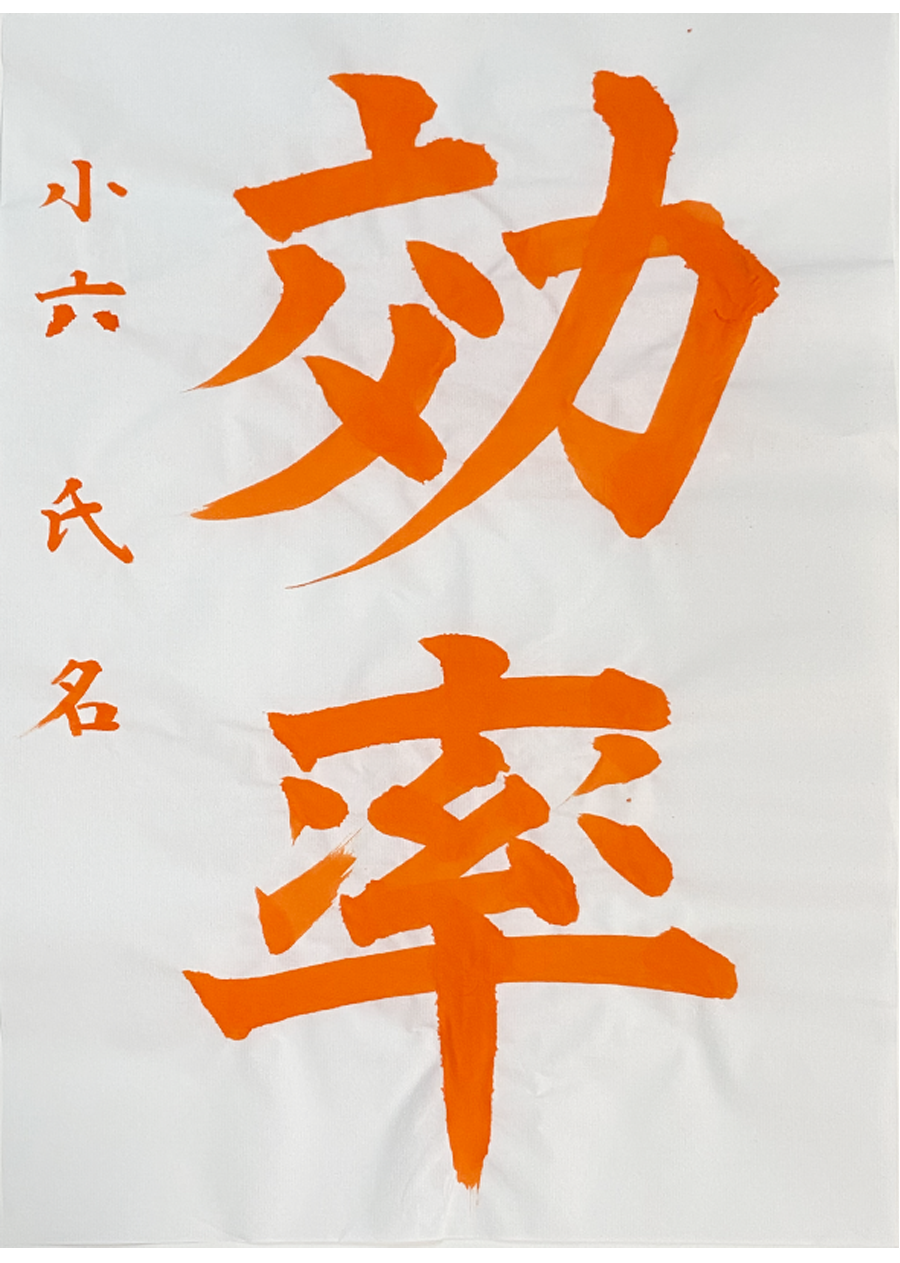 効率
小六 氏名